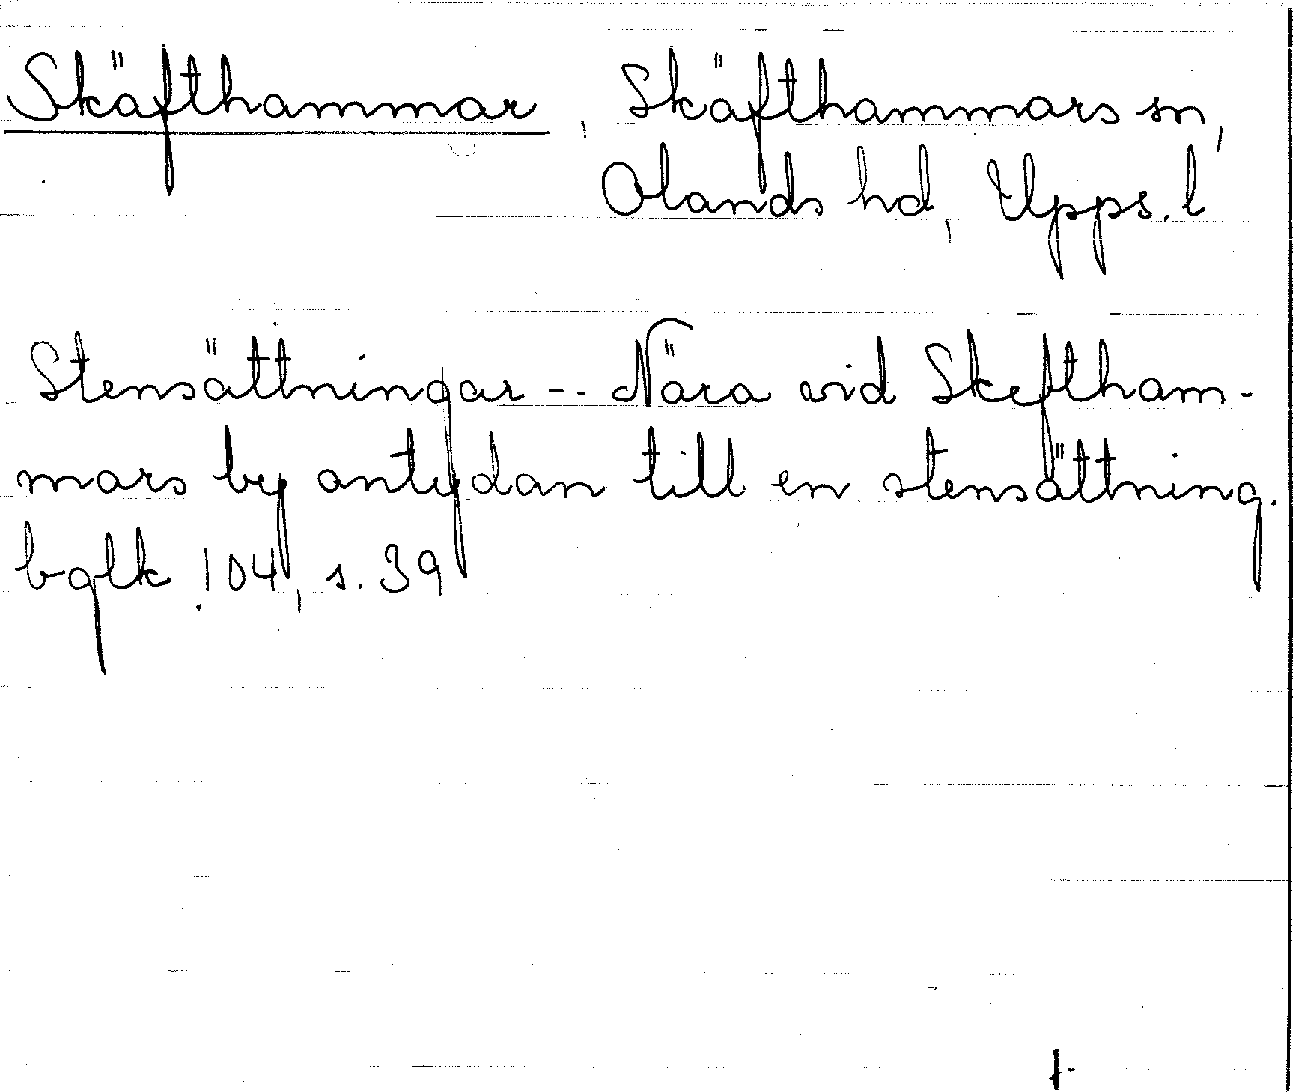 Skäfthammar, Skäfthammars sn,
Olands hd, Upps. l
Stensättningar -- Nära vid Skeftham-
mars by antydan till en stensättning.
bglk 104, s. 39